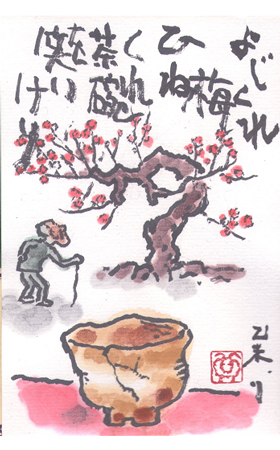 よじくれ
梅
ひね
くれ
茶碗
い
けり
乙未